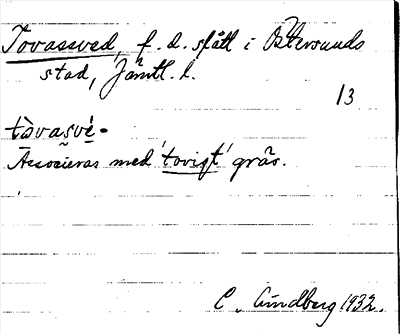 Tovassved, f. d. slått i Östersunds
stad, Jämtl. l.
13
tòvasvé-
Associeras med 'tovigt' gräs.
C. Lindberg 1932.